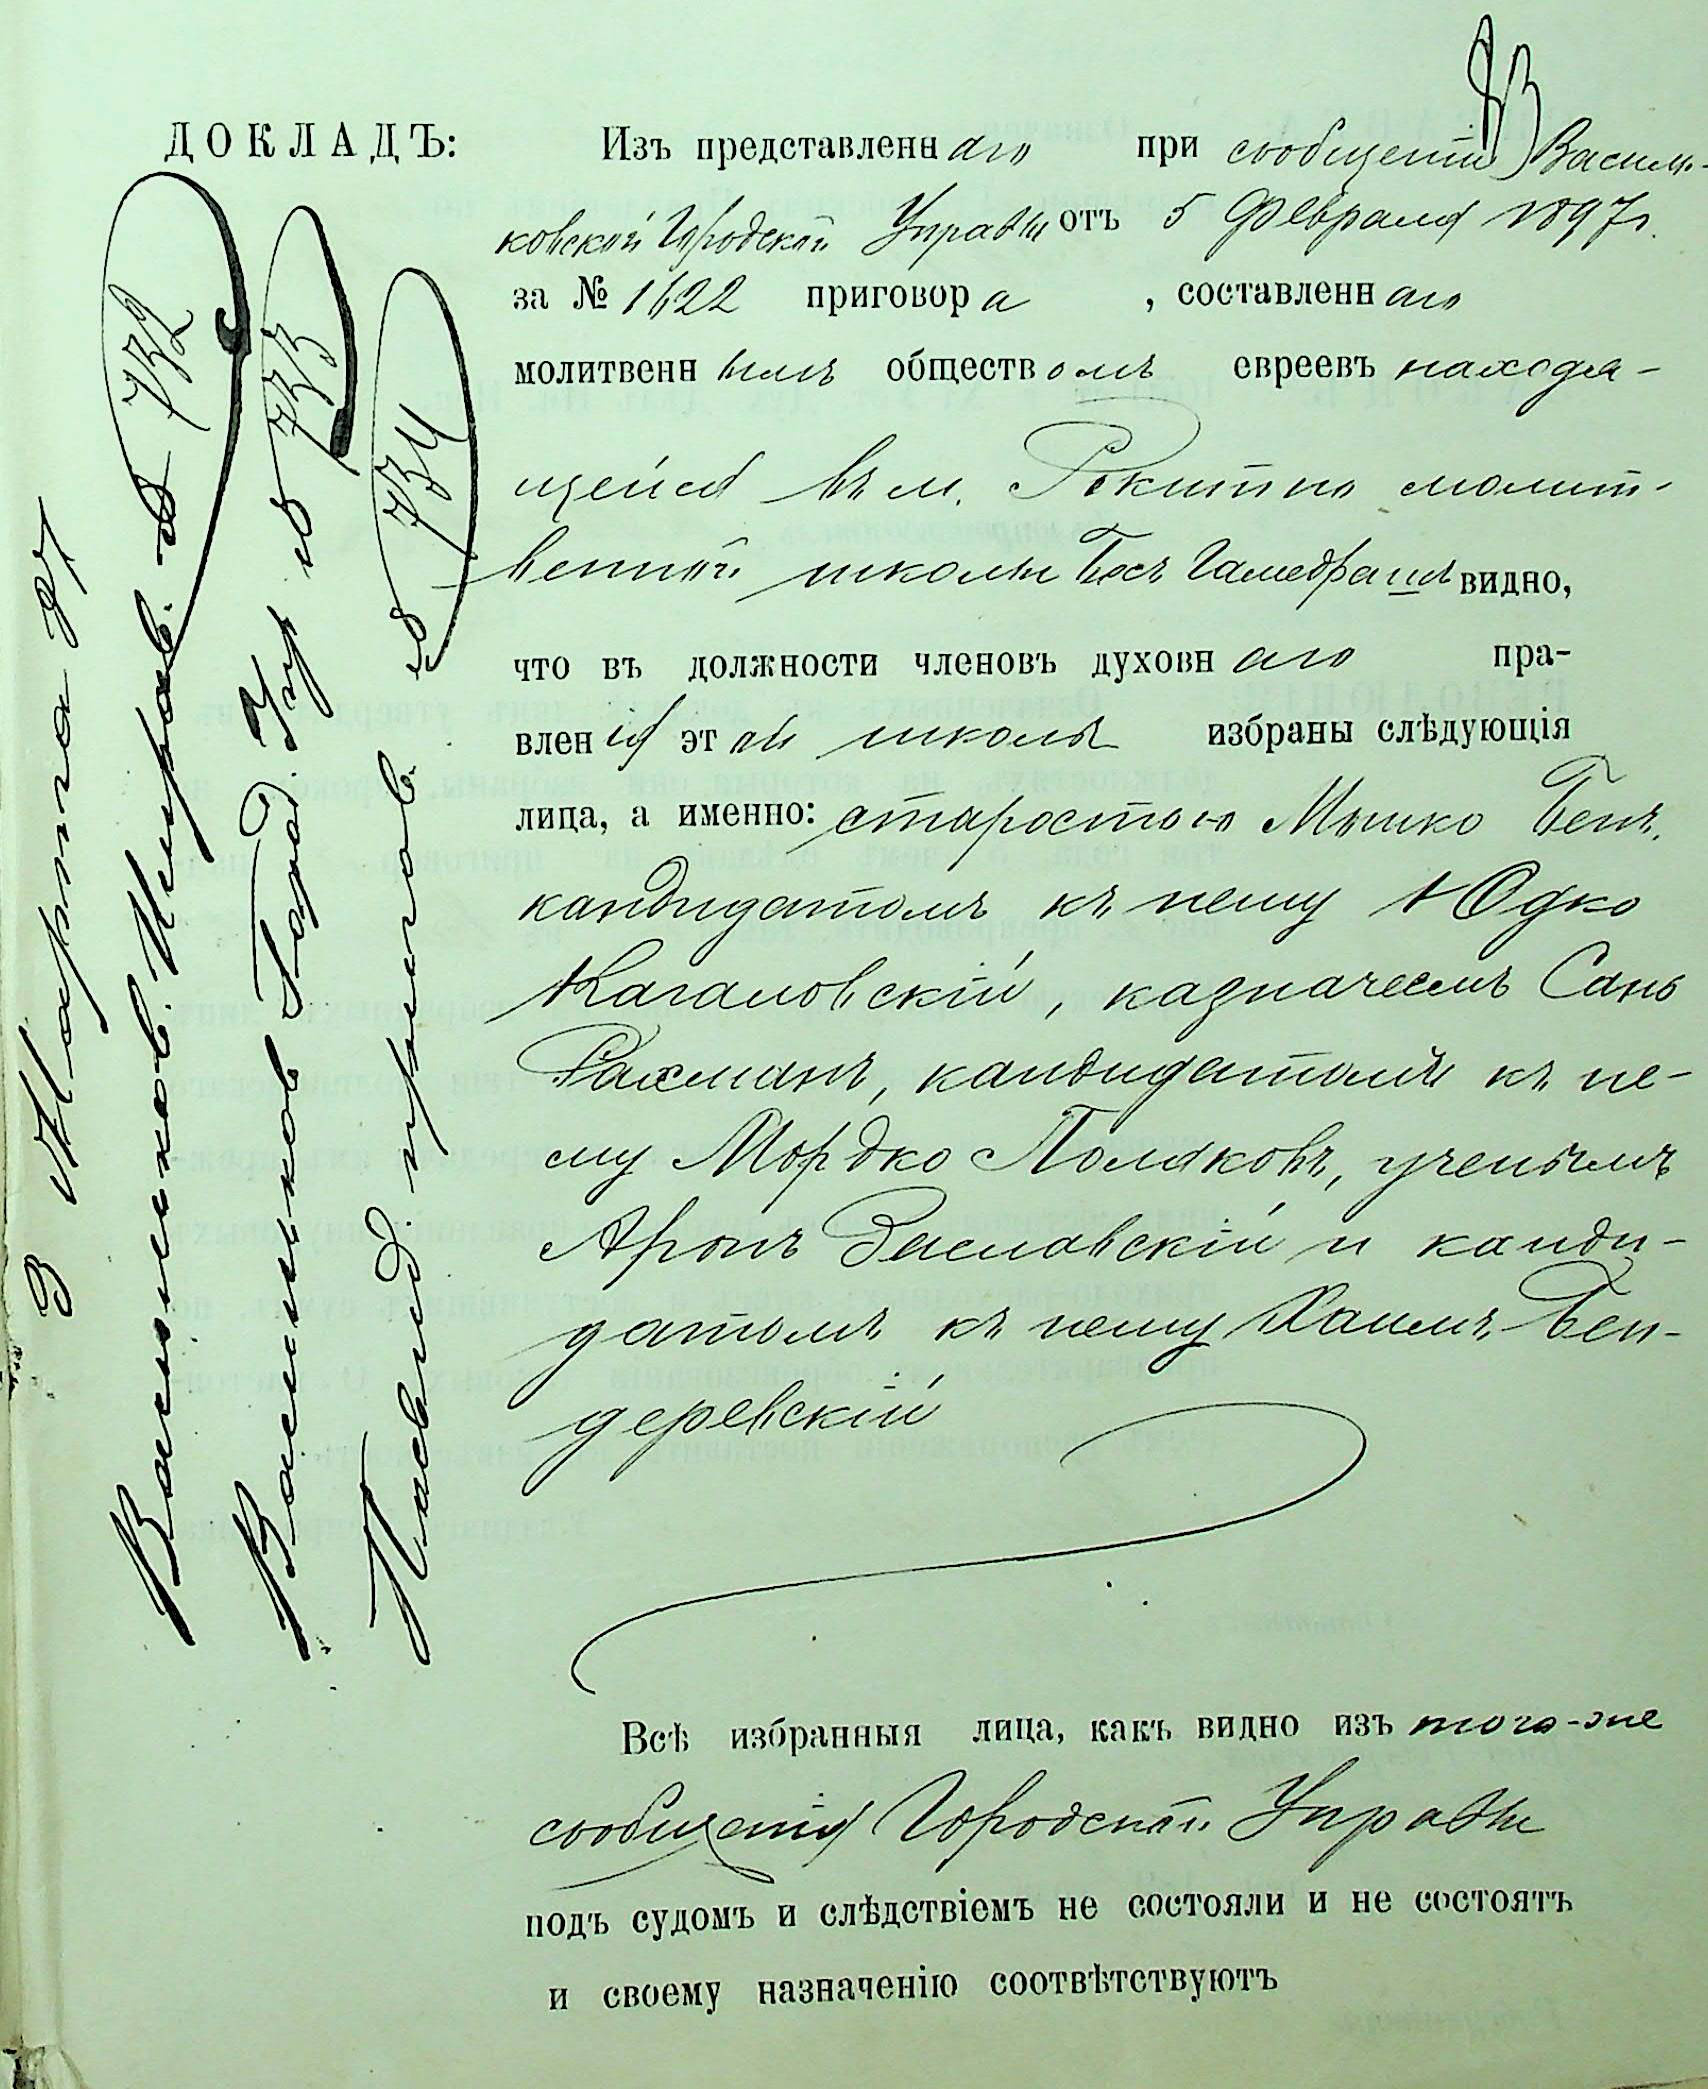 ДОКЛАДЪ:
Изъ представленнаго при сообщеніи Василь-
ковской Городской Управы отъ 5 Февраля 1897 г.
за № 1622 приговора, составленнаго
молитвеннымъ обществомъ евреевъ находя-
щейся въ м. Рокитно молит-
венной школы Бесъ Гамедрашъ видно,
что въ должности членовъ духовнаго пра-
вленія этой школы избраны слѣдующія
лица, а именно: старостою Мошко Бенъ,
кандидатомъ къ нему Юдко
Кагаловскій, казначеемъ Сань
Рахманъ, кандидатомъ къ не-
му Мордко Поляковъ, ученымъ
Аронъ Заславскій и канди-
датомъ къ нему Хаимъ Бен-
деревскій
Всѣ избранныя лица, какъ видно изъ того-же
сообщенія Городской Управы
подъ судомъ и слѣдствіемъ не состояли и не состоятъ
и своему назначенію соотвѣтствуютъ
3 Марта 97
Васильков. Исправ. 732
Васильков Город. Упр 733
приговор 734